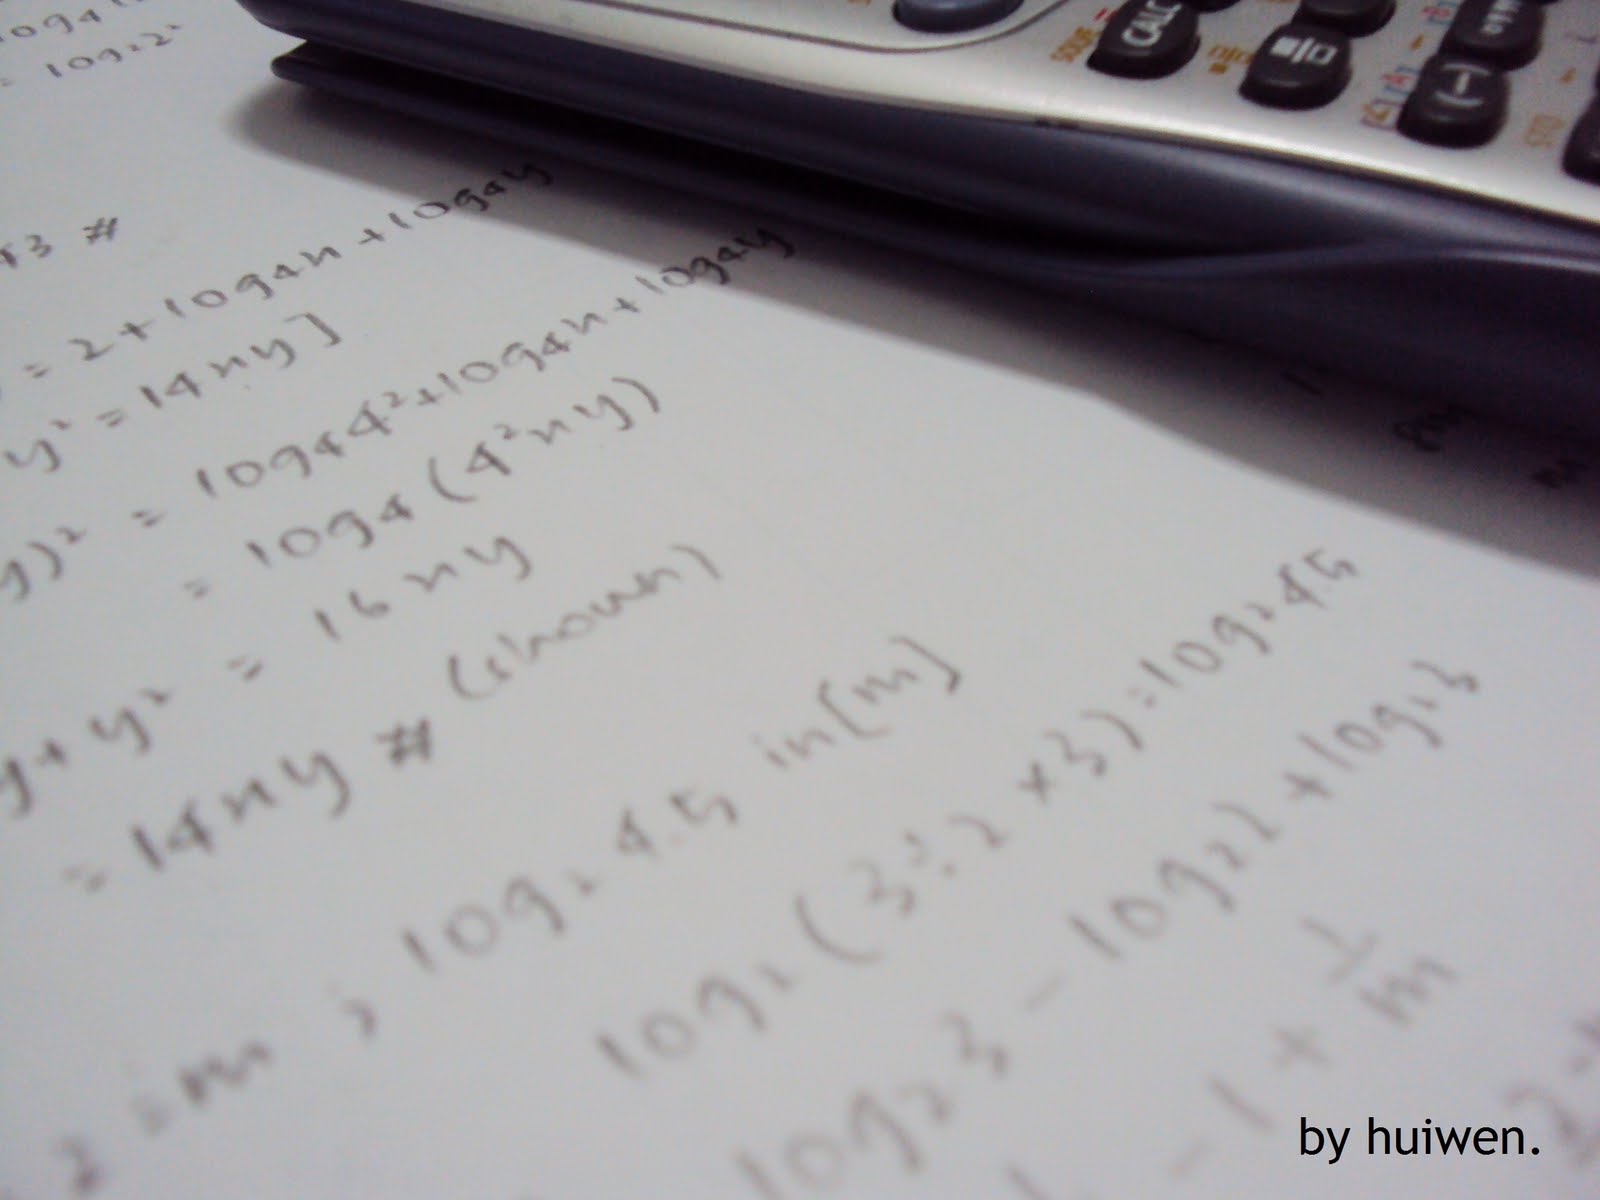 log4
= log22²
43 #
= 2 + log4x + log4y
y² = 14xy]
y)² = log44² + log4x + log4y
= log4 (4²xy)
y + y² = 16xy
= 14xy # (shown)
2 = m ; log2 4.5 in [m]
log2 (3 ÷ 2 × 3) = log2 4.5
log2 3 - log2 2 + log2 3
- 1 + 1/m
CALC
SOLVE
STO
by huiwen.